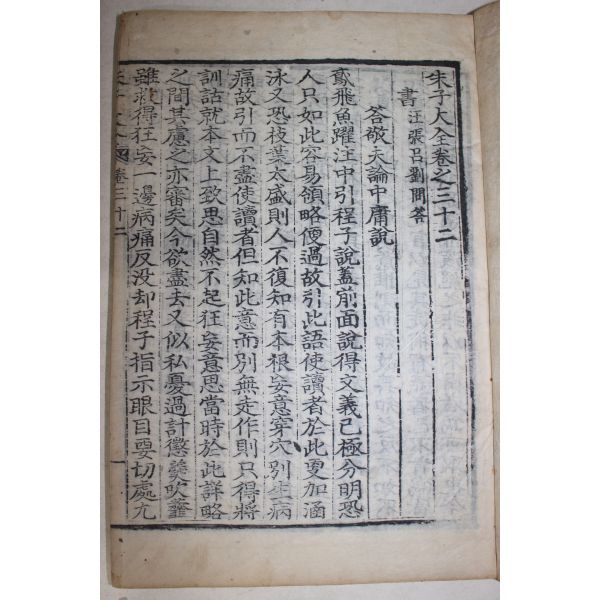 朱子大全卷之三十二
書 汪張呂劉問答
答敬夫論中庸說
鳶飛魚躍注中引程子說蓋前面說得文義已極分明恐
人只如此容易領略便過故引此語使讀者於此更加涵
泳又恐枝葉太盛則人不復知有本根妄意穿穴別生病
痛故引而不盡使讀者但知此意而別無走作則只得將
訓詁就本文上致思自然不起狂妄意思當時於此詳略
之間其慮之亦審矣今欲盡去又似私憂過計懲羹吹虀
雖救得狂妄一邊病痛反没却程子指示眼目要切處尤
朱子大全 卷三十二 一